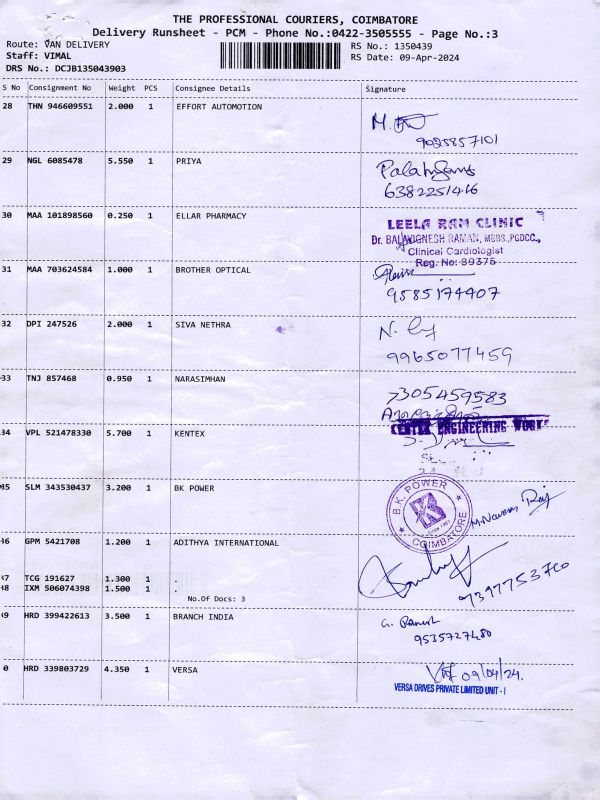 THE PROFESSIONAL COURIERS, COIMBATORE
Delivery Runsheet - PCM - Phone No.:0422-3505555 - Page No.:3
Route: VAN DELIVERY
RS No.: 1350439
Staff: VIMAL
RS Date: 09-Apr-2024
DRS No.: DCJB135043903
S No Consignment No Weight PCS Consignee Details Signature
28 THN 946609551 2.000 1 EFFORT AUTOMOTION
9025857101
29 NGL 6085478 5.550 1 PRIYA
6382251416
30 MAA 101898560 0.250 1 ELLAR PHARMACY
LEELA RAM CLINIC
Clinical Cardiologist
Reg. No: 89375
31 MAA 703624584 1.000 1 BROTHER OPTICAL
9585174407
32 DPI 247526 2.000 1 SIVA NETHRA
9965077459
33 TNJ 857468 0.950 1 NARASIMHAN
7305459583
34 VPL 521478330 5.700 1 KENTEX
KENTEX ENGINEERING WORKS
35 SLM 343530437 3.200 1 BK POWER
B.K. POWER
COIMBATORE
36 GPM 5421708 1.200 1 ADITHYA INTERNATIONAL
37 TCG 191627 1.300 1 .
38 IXM 506074398 1.500 1 .
No.Of Docs: 3
7397753760
39 HRD 399422613 3.500 1 BRANCH INDIA
9535727480
0 HRD 339803729 4.350 1 VERSA
09/04/24.
VERSA DRIVES PRIVATE LIMITED UNIT - I